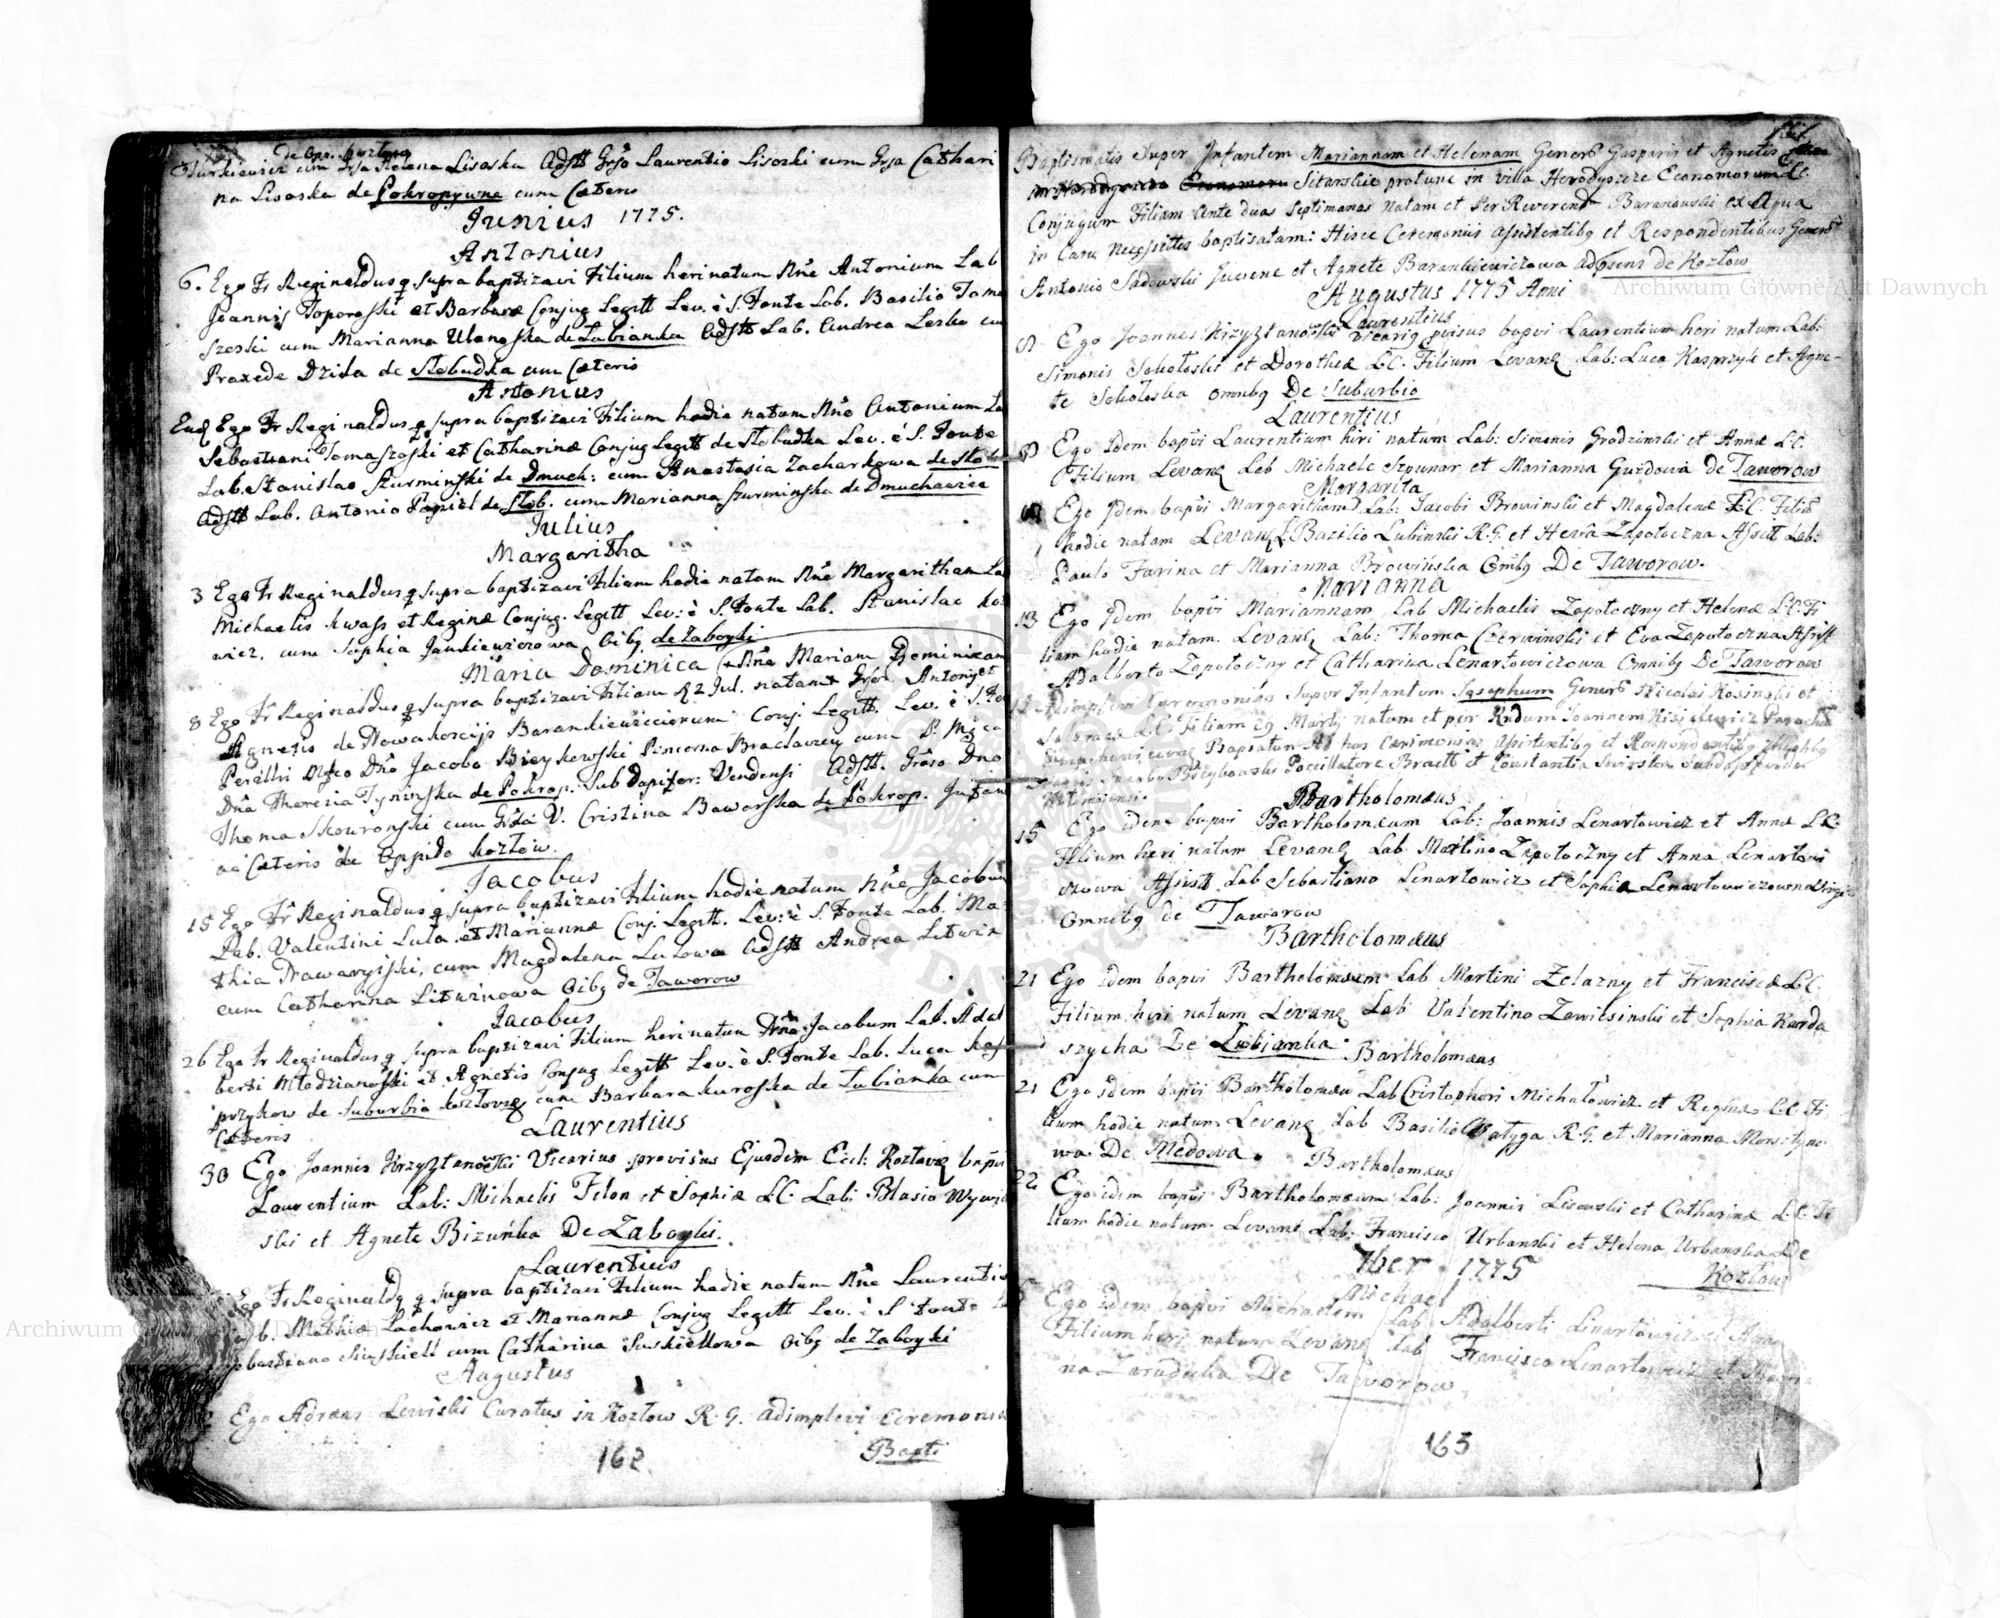 de Opp. Kozlow
Turkiewicz cum Helena Lisoska Adstt Grso Laurentio Lisoski cum Grsa Cathari
na Lisoska de Pokropywna cum Cæteris
Junius 1775.
Antonius
6. Ego Fr Reginaldus q supra baptizavi Filium heri natum Nñe Antonium Lab
Joannis Toporoski et Barbaræ Conjug Legitt Lev. è S. Fonte Lab. Basilio Toma
szeski cum Marianna Ulanoska de Lubianka Adstt Lab. Andrea Lesko cu
Praxede Dzida de Slobudka cum Cæteris
Antonius
Ead Ego Fr Reginaldus q supra baptizavi Filium hodie natum Nñe Antonium La
Sebastiani Tomaszoski et Catharinæ Conjug Legitt de Slobudka Lev. è S. Fonte
Lab. Stanislao Szurminski de Dmuch: cum Anastasia Zacharkowa de Slob
Adstt Lab. Antonio Papiel de Slob. cum Marianna Szurminska de Dmuchawiec
Julius
Margaritha
3 Ego Fr Reginaldus q supra baptizavi Filiam hodie natam Nñe Margaritham La
Michaelis Kwass et Reginæ Conjug. Legitt Lev: è S. Fonte Lab. Stanislao Ko
wicz, cum Sophia Jankiewiczowa Oibq de Zaboyki
Maria Dominica Nñe Mariam Dominicam
8 Ego Fr Reginaldus q supra baptizavi Filiam 2 Jul. natam Antonij et
Agnetis de Nowakoscijs Barankiewicciorum Conj. Legitt. Lev. è S. Fon
Perillri Mgfco Dño Jacobo Bieykowski Pincerna Braclavien cum P. Mgca
Dña Theresia Tyninska de Pokrop. Sub Dapifer: Vendensi Adstt. Grõso Dno
Thoma Skowronski cum V. Cristina Baworska de Pokrop.
ac Cæteris de Oppido Kozlow.
Jacobus
15 Ego Fr Reginaldus q supra baptizavi Filium hodie natum Nñe Jacobum
Lab. Valentini Lula et Mariannæ Conj. Legitt. Lev: è S. Fonte Lab. Ma
thia cum Magdalena Lulowa Adstt Andrea Litwin
cum Catharina Litwinowa Oibq de Taworow
Jacobus
26 Ego Fr Reginaldus q supra baptizavi Filium heri natum Nñe Jacobum Lab. Adal
berti Mlodzianoski et Agnetis Conjug Legitt Lev. è S. Fonte Lab. Luca Kas
przykow de Suburbio Kozloviæ cum Barbara Kuroska de Lubianka cum
Cæteris
Laurentius
30 Ego Joannis Krzysztanoski Vicarius provisus Ejusdem Eccl: Kozlaviæ bapvi
Laurentium Lab: Michaelis Felon et Sophiæ L.C. Lab: Blasio
ski et Agnete Bizunka De Zaboyki.
Laurentius
Ego Fr Reginaldq q supra baptizavi Filium hodie natum Nñe Laurentiu
Lab. Mathiæ Lachowicz et Mariannæ Conjug Legitt Lev. è S Fonte
Sebastiano cum Catharina Suskiellowa Oibq de Zaboyki
Augustus
Ego Adreas Lewiski Curatus in Kozlow R. G. adimplevi Ceremonia
162. Bapti
Baptismatis Super Infantem Mariannam et Helenam Generõ Gasparis et Agnetis
Sitarskie protunc in villa Horodyszcze Economorum L.C.
Conjugum Filiam Ante duas Septimanas natam et Per Reverend Baranowski ex Aqua
in Casu Necessittis baptisatam: Hisce Ceremoniis Assistentibq et Respondentibus Generõ
Antonio Sadowski Juvene et Agnete Barankiewiczowa de Kozlow
Augustus 1775 Anni
Laurentius
8 Ego Joannes Krzysztanoski Vicariq pvisus bapvi Laurentium heri natum Lab:
Simonis Sokoloski et Dorotheæ L.C. Filium Levanq Lab: Luca Kasprzyk et Agne-
te Sokoloska omnibq De Suburbio
Laurentius
8 Ego Idem bapvi Laurentium hiri natum Lab: Simonis Grodzinski et Annæ L.C.
Filium Levanq Lab Michaele Szpunar et Marianna Guzdowa de Taworow
Margarita
Ego Idem bapvi Margaritham Lab: Jacobi Browinski et Magdalenæ L.C. Filiã
hodie natam Levanq Bazilio Lubinski R.G. et Zapotoczna Assistt Lab:
Paulo Farina et Marianna Browińska Omibq De Taworow.
Marianna
13 Ego Idem bapvi Mariannam Lab Michaelis Zapotoczny et Helenæ L.C. Fi
liam hodie natam. Levanq Lab: Thoma Czerwinski et Eva Zapotoczna Assist
Adalberto Zapotoczny et Catharina Lenartowiczowa Omnibq De Taworow
Adimplevi Ceremonias Super Infantem Josephum Generõ Nicolai Kosinski et
L.C. Filium 29 Martij natum et per Rndum Joannem
Baptsatum Ad has Cerimonias Asistentibq et Respondentibq
Bieykowski Poccillatore et Constantia
Bartholomæus
15 Ego idem bapvi Bartholomæum Lab: Joannis Lenartowicz et Annæ L.C.
Filium heri natum Levanq Lab Martino Zapotoczny et Anna Lenartowi
czowa Assistt Lab Sebastiano Lenartowicz et Sophia Lenartowiczowna
Omnibq de Taworow
Bartholomæus
21 Ego idem bapvi Bartholomæum Lab Martini Zelazny et Franciscæ L.C.
Filium heri natum Levanq Lab Valentino Zawiesinski et Sophia Karda
szycha De Lubianka
Bartholomæus
21 Ego idem bapvi Bartholomæu Lab Cristophori Michalowicz et Reginæ L.C. Fi
lium hodie natum Levanq Lab Basilio R.G. et Marianna
wa De Medowa.
Bartholomæus
22 Ego idem bapvi Bartholomæum Lab: Joannis Lisowski et Catharinæ L.C. Fi
lium hodie natum. Levanq Lab: Francisco Urbanski et Helena Urbanska De
7ber 1775 Kozlow
Michael
Ego idem bapvi Michaelem Lab Adalberti Linartowicz et
Filium heri natum Levanq Lab Francisco Lenartowicz et
na Zarudulia De Taworow.
163
Archiwum Główne Akt Dawnych